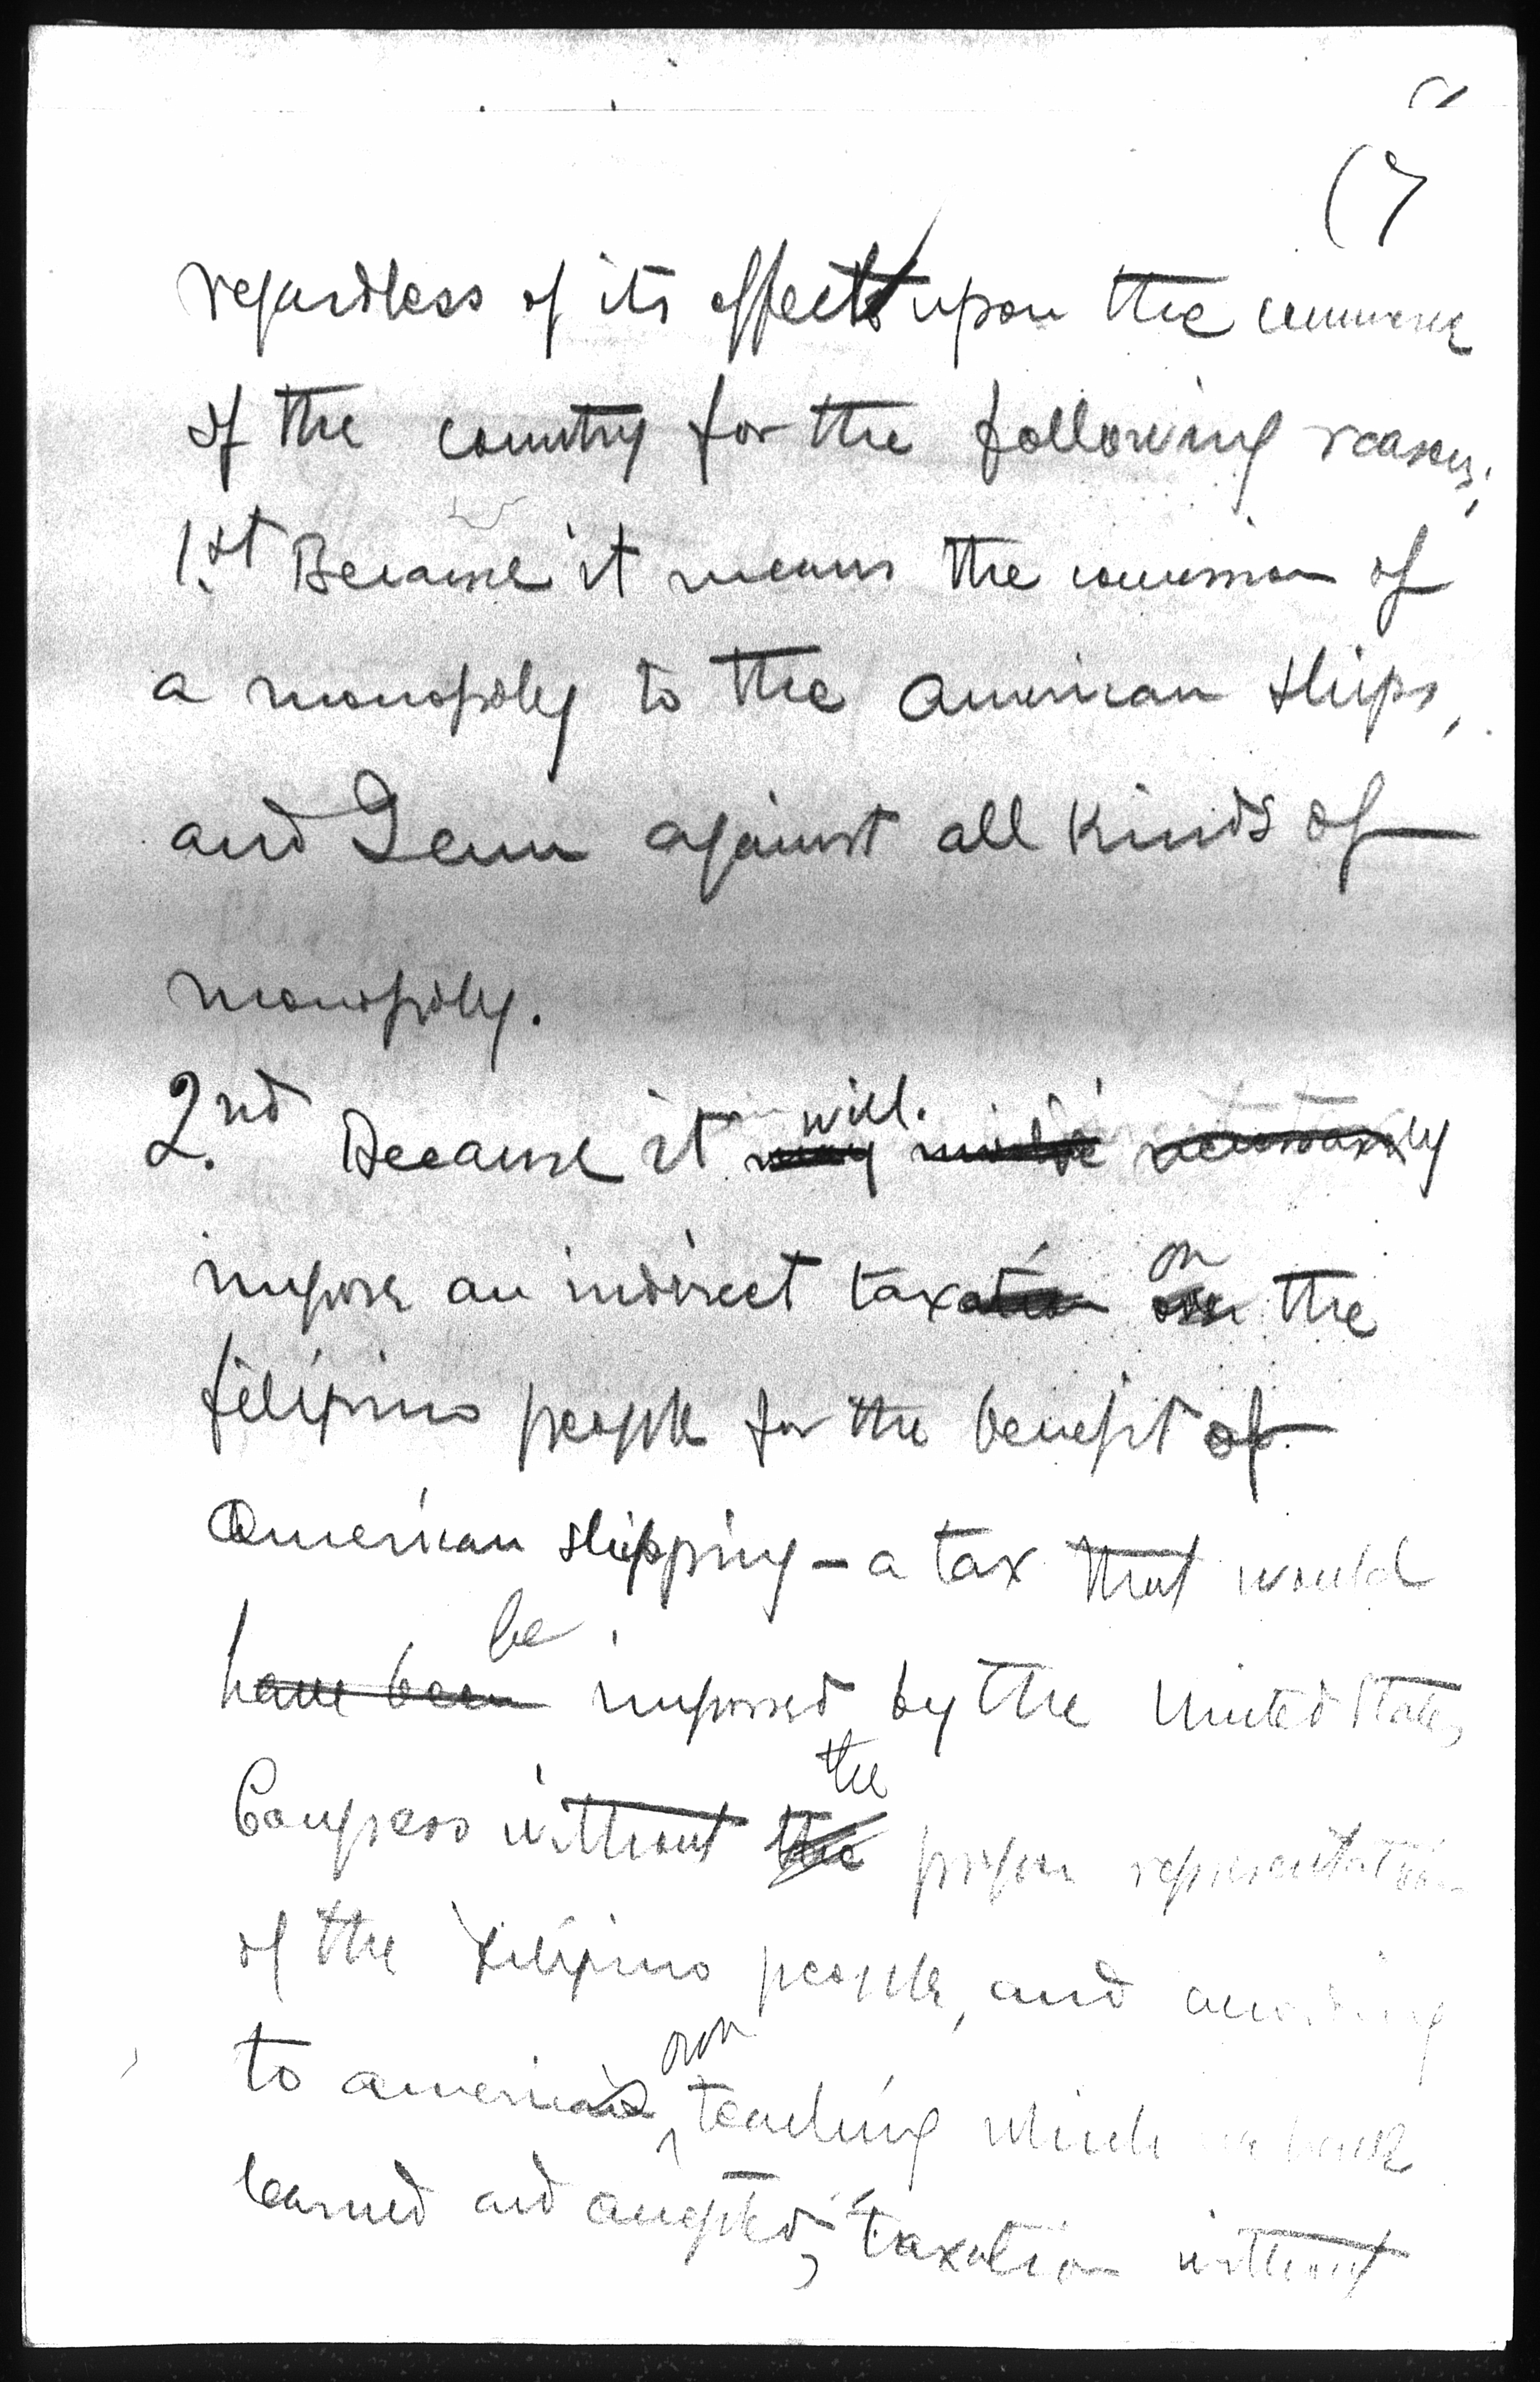 (7
regardless of its effect upon the commerce
of the country for the following reasons;
1.st Because it means the concession of
a monopoly to the American ships,
and I am against all kinds of
monopoly.
2.nd Because it may will necessarily
impose an indirect taxation on the
filipino people for the benefit of
American shipping - a tax that would
have been be imposed by the United States
Congress without the the proper representation
of the Filipino people, and according
to american own teaching which we have
learned and accepted, "taxation without